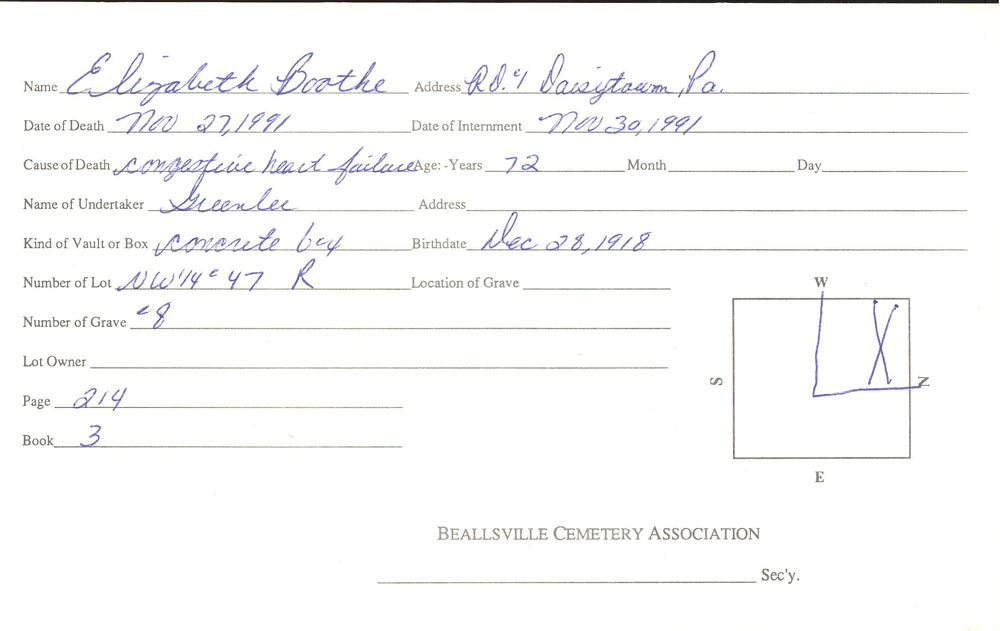 Name Elizabeth Boothe Address RD.#1 Daisytown, Pa.
Date of Death Nov 27, 1991 Date of Internment Nov 30, 1991
Cause of Death congestive heart failure Age: -Years 72 Month Day
Name of Undertaker Greenlee Address
Kind of Vault or Box concrete box Birthdate Dec 28, 1918
Number of Lot NW 1/4 # 47 R Location of Grave
Number of Grave #8
Lot Owner
Page 214
Book 3
W
S N
E
BEALLSVILLE CEMETERY ASSOCIATION
Sec'y.